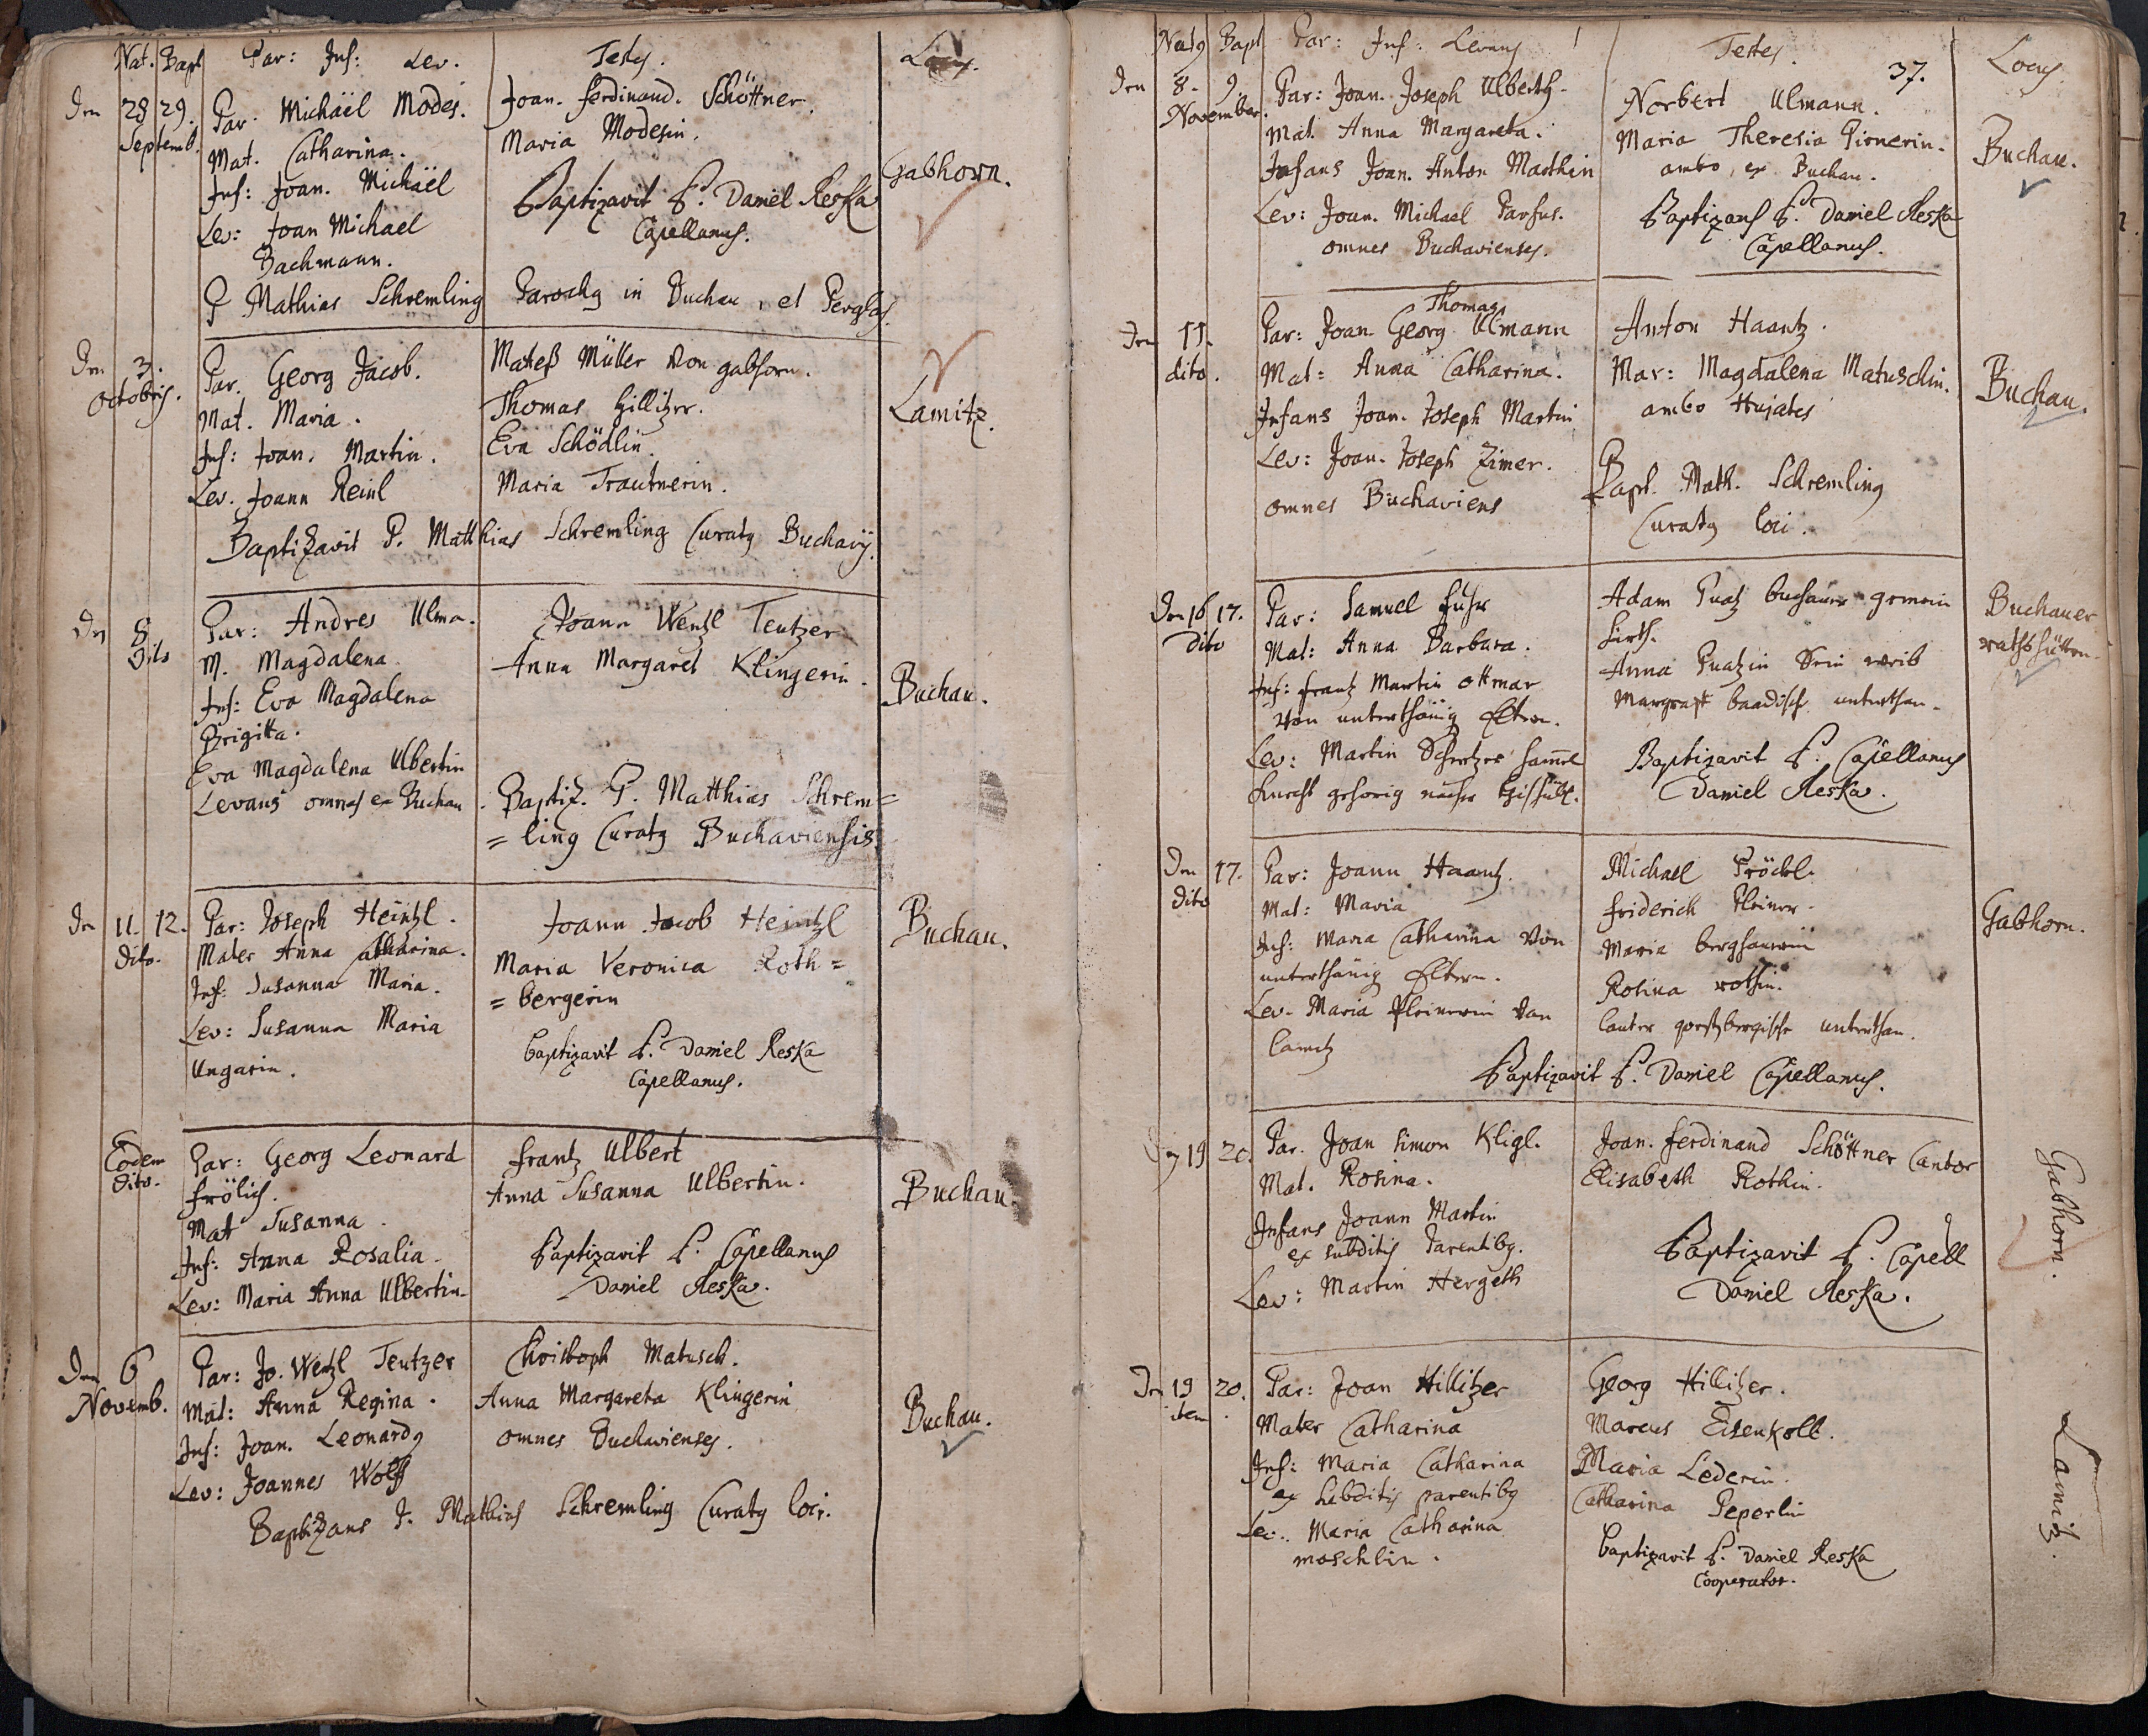 Nat. Bapt Par: Inf: Lev. Testes. Locus.
Den 28 29. Septemb.
Par. Michäel Modes.
Mat. Catharina.
Inf: Joan. Michäel
Lev: Joan Michael
Bachmann.
Joan. Ferdinand. Schöttner.
Maria Modesin.
Baptizavit P. Daniel Reska
Capellanus.
Gabhorn.
P Mathias Schremling Parochg in Buchau, et Perglas.
Den 3. Octobris.
Par. Georg Jacob.
Mat. Maria.
Inf: Joan. Martin.
Lev. Joann Reinl
Mateß Müller von gabhorn.
Thomas Hillitzer.
Eva Schödlin.
Maria Trautnerin.
Lamitz.
Baptizavit P. Matthias Schremling Curatg Buchavij.
Den 8 dito
Par: Andres Ulma.
M. Magdalena
Inf: Eva Magdalena
Brigitta.
Eva Magdalena Ulbertin
Levans omnes ex Buchau.
Joann Wentzl Teutzer
Anna Margaret Klingerin.
Baptiz. P. Matthias Schrem=
=ling Curatg Buchaviensis.
Buchau.
Den 11. 12. dito.
Par: Joseph Heintzl.
Mater Anna Catharina.
Inf: Susanna Maria.
Lev: Susanna Maria
Ungarin.
Joann Jacob Heintzl
Maria Veronica Roth=
=bergerin
baptizavit P. Daniel Reska
Capellanus.
Buchau.
Eodem dito.
Par: Georg Leonard
Frölich.
Mat Susanna.
Inf: Anna Rosalia.
Lev: Maria Anna Ulbertin.
Frantz Ulbert
Anna Susanna Ulbertin.
Baptizavit P. Capellanus
Daniel Reska.
Buchau.
Den 6 Novemb.
Par: Jo. Wentzl Teutzer
Mat: Anna Regina.
Inf: Joan. Leonardg
Lev: Joannes Wolff
Christoph Matusch.
Anna Margareta Klingerin
omnes Buchavienses.
Buchau.
Baptizans P. Mathias Schremling Curatg loci.
Natg Bapt Par: Inf: Levans Testes. 37. Locus
Den 8. 9. November.
Par: Joan. Joseph Ulberth.
Mat. Anna Margareta.
Infans Joan. Anton Marthin
Lev: Joan. Michael Parfus.
omnes Buchavienses.
Norbert Ulmann.
Maria Theresia Pirnerin.
ambo ex Buchau.
Baptizans P. Daniel Reska
Capellanus.
Buchau.
Den 11. dito.
Thomas
Par: Joan. Georg Ulmann
Mat: Anna Catharina.
Infans Joan. Joseph Martin
Lev: Joan. Joseph Zimer.
omnes Buchaviens
Anton Haantz.
Mar: Magdalena Matuschin.
ambo Hujates
P
Bapt. Math. Schremling
Curatg loci.
Buchau.
Den 16 17. dito
Par: Samuel Fuhr
Mat: Anna Barbara.
Inf: frantz Martin ottmar
von unterthänig Eltern.
Lev: Martin
Knecht gehörig
Adam buchauer gemein
hirth.
Anna sein weib
Margraff baadisch unterthan.
Baptizavit P. Capellanus
Daniel Reska.
Buchauer
rathshütten.
Den 17. dito
Par: Joann Haantz.
Mat: Maria
Inf: Maria Catharina von
unterthänig Eltern.
Lev. Maria Pleinerin von
lamitz
Michael Pröckl.
Friderich Pleiner.
Maria berghauerin
Rosina rothin.
lauter unterthan.
Baptizavit P. Daniel Capellanus.
Gabhorn.
19 20.
Par. Joan Simon Kligl.
Mat. Rosina.
Infans Joann Martin
ex subditis Parentibg.
Lev: Martin Hergeth
Joan. Ferdinand Schöttner Cantor
Elisabeth Rothin.
Baptizavit P. Capell
Daniel Reska.
Gabhorn.
Den 19 20. item
Par: Joan Hillitzer
Mater Catharina
Inf: Maria Catharina
ex subditis parentibg
Lev: Maria Catharina
moschlin.
Georg Hillitzer.
Marcus Eisenkolb.
Maria Lederin.
Catharina Peperlin
baptizavit P. Daniel Reska
Cooperator.
Lamitz.